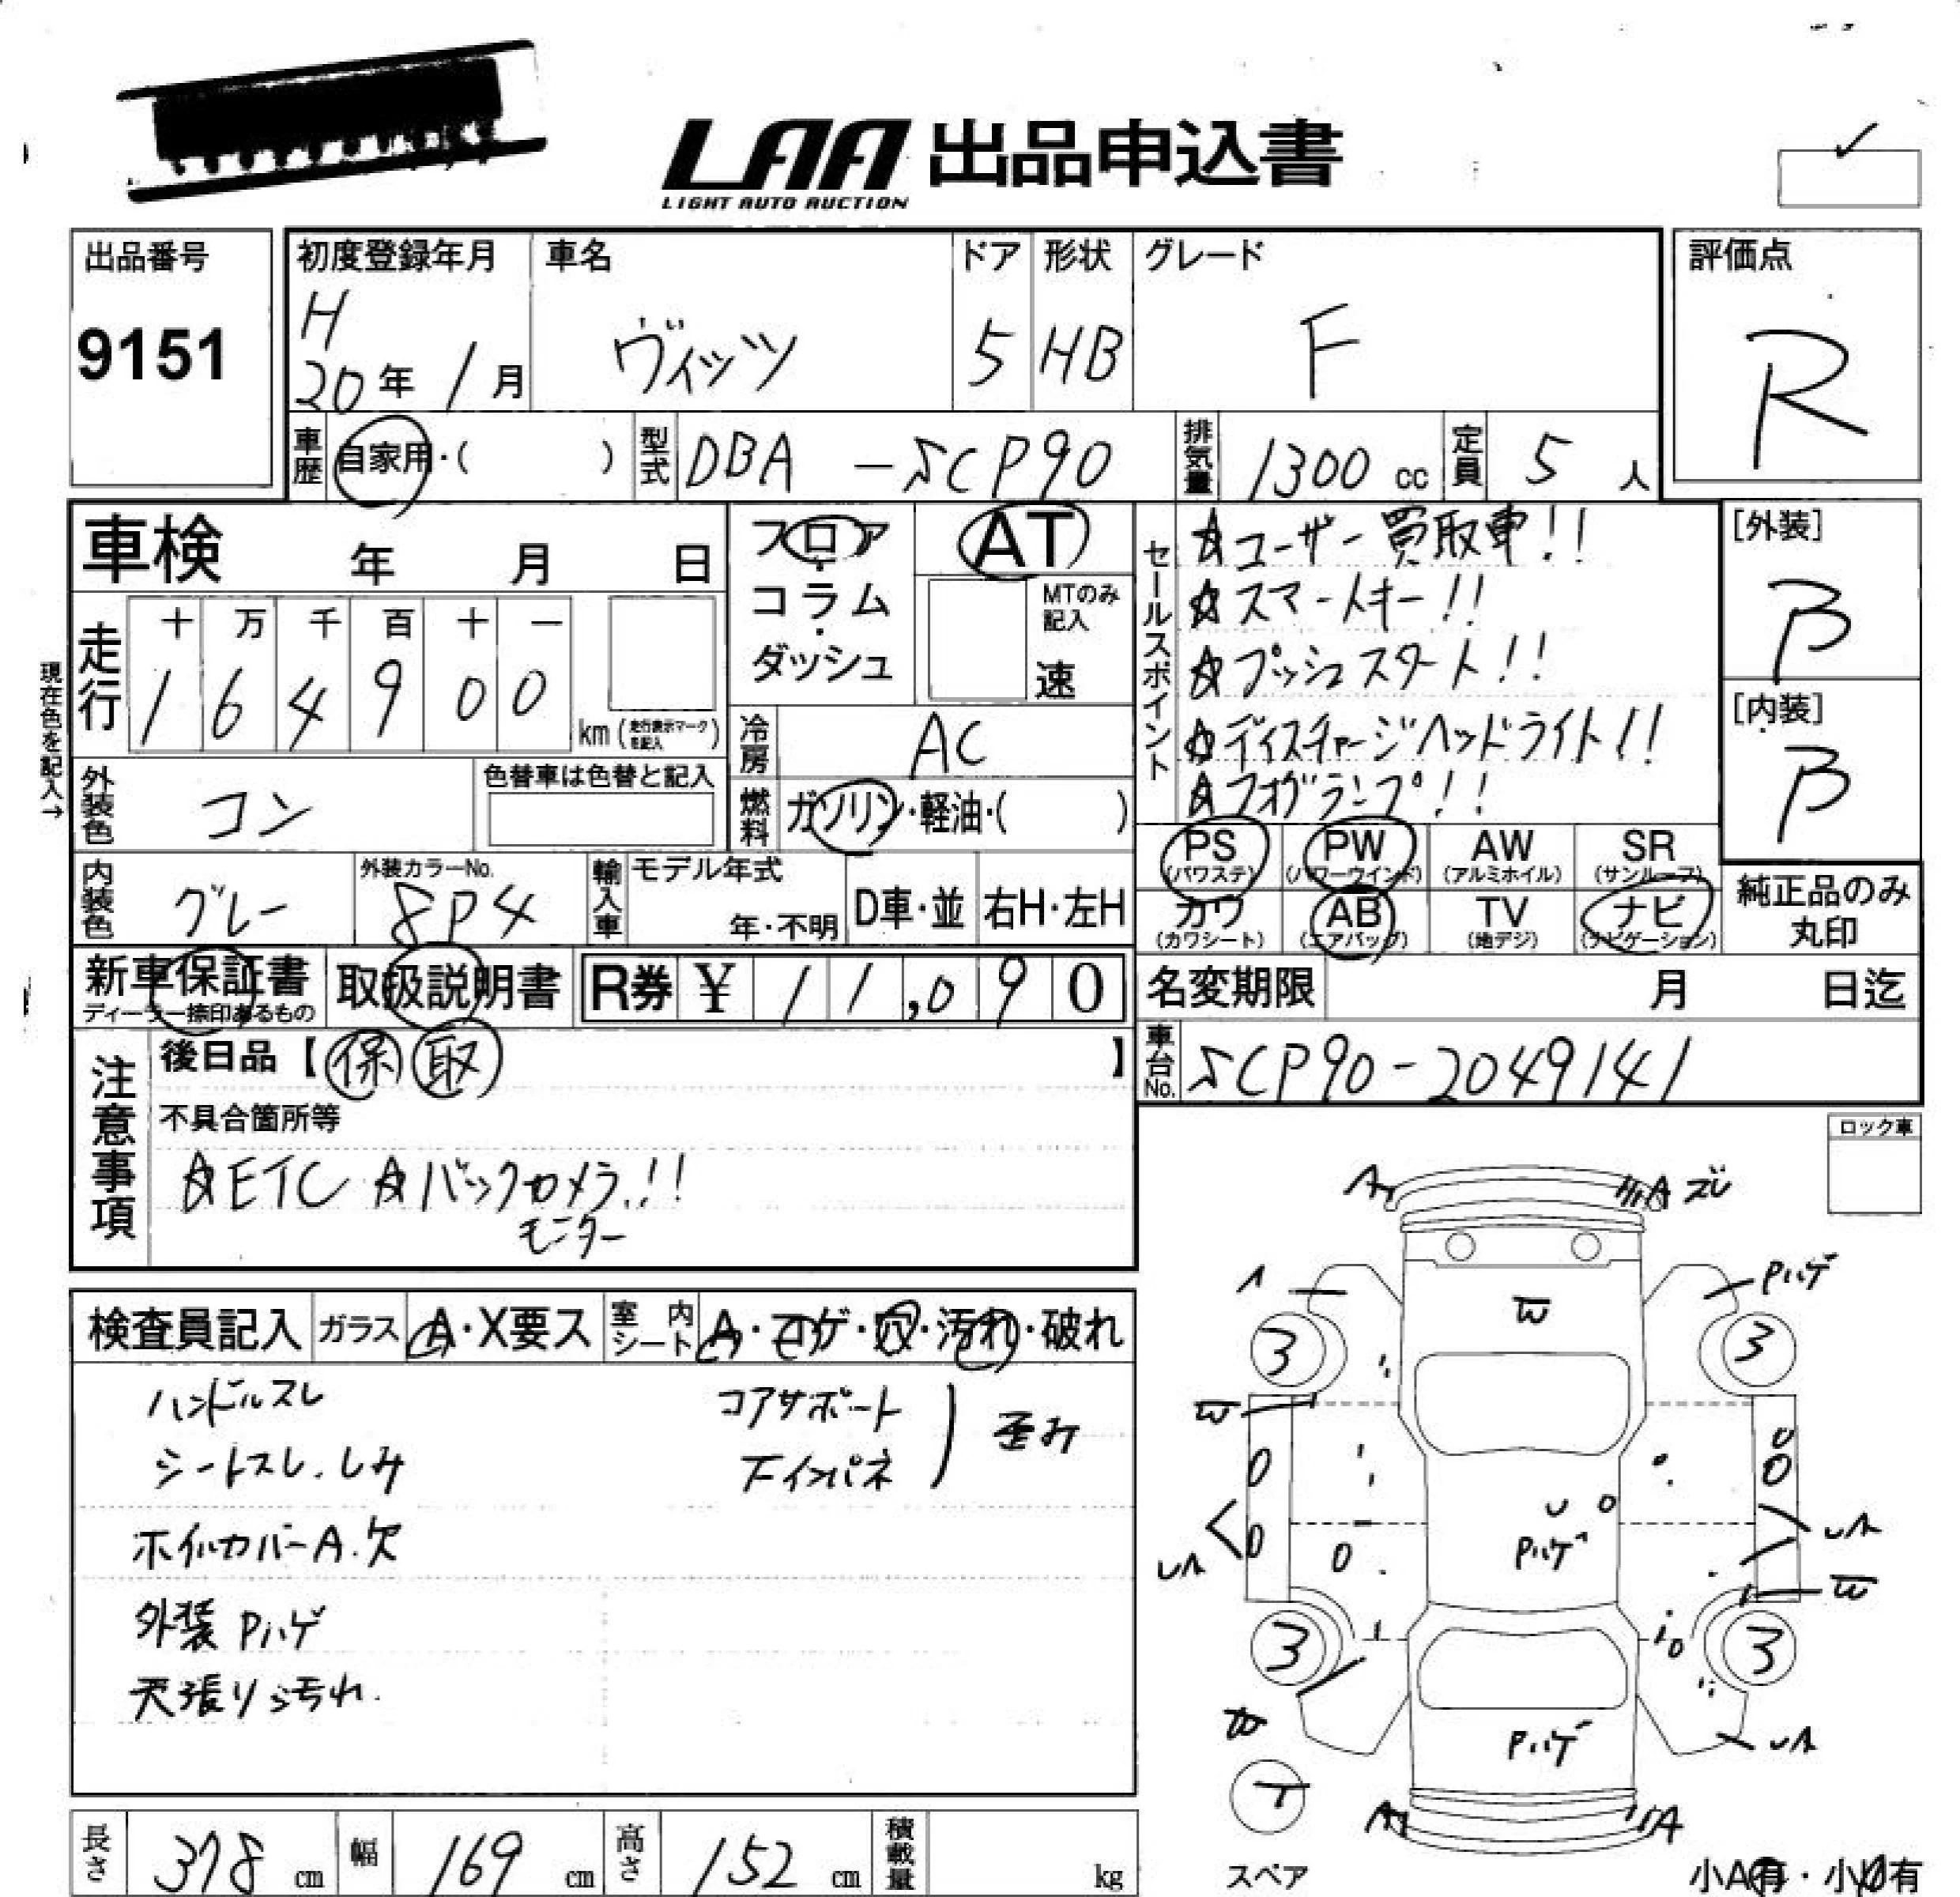 LAA 出品申込書
LIGHT AUTO AUCTION
出品番号
9151
初度登録年月
H
20年 1月
車名
ヴィッツ
ドア
5
形状
HB
グレード
F
評価点
R
車歴 自家用・( )
型式 DBA -SCP90
排気量 1300 cc
定員 5 人
車検 年 月 日
現在色を記入→
走行
十 万 千 百 十 一
1 6 4 9 0 0
km (走行表示マークを記入)
外装色 コン
色替車は色替と記入
内装色 グレー
外装カラーNo.
8P4
フロア
コラム
ダッシュ
AT
MTのみ記入
速
冷房 AC
燃料 ガソリン・軽油・( )
輸入車
モデル年式
年・不明
D車・並
右H・左H
セールスポイント
☆ユーザー買取車!!
☆スマートキー!!
☆プッシュスタート!!
☆ディスチャージヘッドライト!!
☆フォグランプ!!
[外装]
B
[内装]
B
PS (パワステ)
PW (パワーウインド)
AW (アルミホイル)
SR (サンルーフ)
カワ (カワシート)
AB (エアバッグ)
TV (地デジ)
ナビ (ナビゲーション)
純正品のみ
丸印
新車保証書
ディーラー捺印あるもの
取扱説明書
R券 ¥ 11,090
名変期限 月 日迄
車台No. SCP90-2049141
注意事項
後日品【保 取 】
不具合箇所等
☆ETC ☆バックカメラ!!
モニター
ロック車
検査員記入
ガラス A・X要ス
室内シート A・コゲ・穴・汚れ・破れ
ハンドルスレ
シートスレ、しみ
ホイルカバーA.欠
外装Pハゲ
天張り汚れ.
コアサポート
下インパネ
歪み
A
A ズレ
Pハゲ
W
3
3
W
UA
UA
U
Pハゲ
W
3
3
UA
Pハゲ
T
A
A
スペア
小A有・小U有
長さ 378 cm
幅 169 cm
高さ 152 cm
積載量 kg